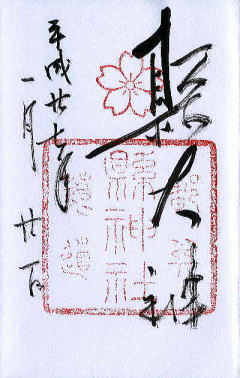 縣大神
平成廿七年
一月廿一日
縣神社